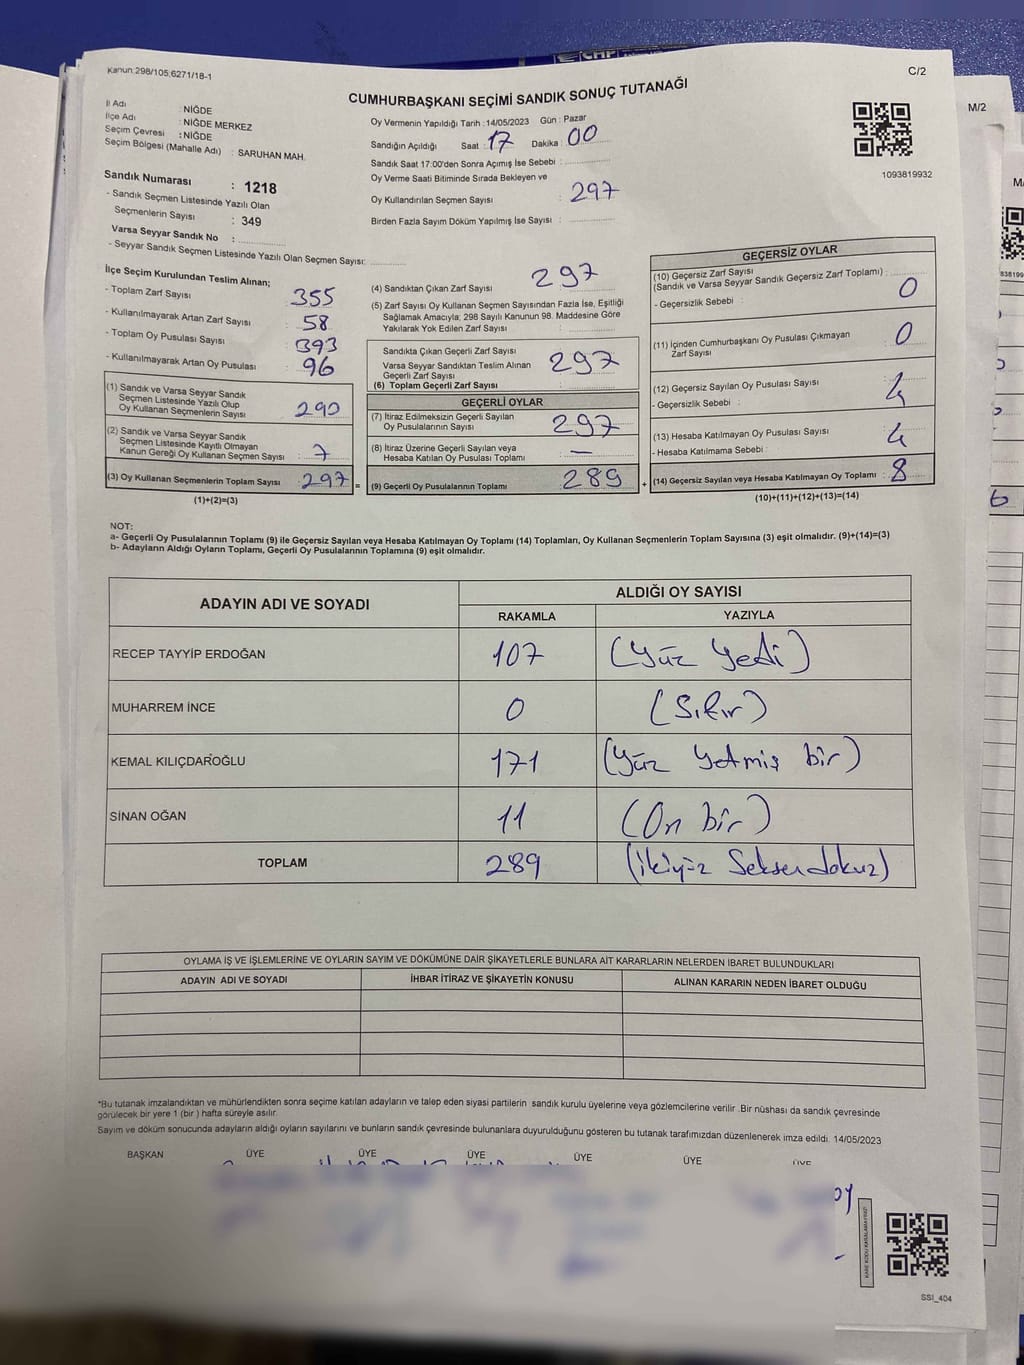 Kanun:298/105,6271/18-1
C/2
CUMHURBAŞKANI SEÇİMİ SANDIK SONUÇ TUTANAĞI
M/2
İl Adı : NİĞDE
İlçe Adı : NİĞDE MERKEZ
Seçim Çevresi : NİĞDE
Seçim Bölgesi (Mahalle Adı) : SARUHAN MAH.
Oy Vermenin Yapıldığı Tarih : 14/05/2023 Gün : Pazar
Sandığın Açıldığı Saat : 17 Dakika : 00
Sandık Saat 17:00'den Sonra Açımış İse Sebebi :
Oy Verme Saati Bitiminde Sırada Bekleyen ve
Oy Kullandırılan Seçmen Sayısı : 297
Birden Fazla Sayım Döküm Yapılmış İse Sayısı :
1093819932
Sandık Numarası : 1218
- Sandık Seçmen Listesinde Yazılı Olan
Seçmenlerin Sayısı : 349
Varsa Seyyar Sandık No :
- Seyyar Sandık Seçmen Listesinde Yazılı Olan Seçmen Sayısı:
İlçe Seçim Kurulundan Teslim Alınan;
- Toplam Zarf Sayısı : 355
- Kullanılmayarak Artan Zarf Sayısı : 58
- Toplam Oy Pusulası Sayısı : 393
- Kullanılmayarak Artan Oy Pusulası : 96
(1) Sandık ve Varsa Seyyar Sandık
Seçmen Listesinde Yazılı Olup
Oy Kullanan Seçmenlerin Sayısı : 290
(2) Sandık ve Varsa Seyyar Sandık
Seçmen Listesinde Kayıtlı Olmayan
Kanun Gereği Oy Kullanan Seçmen Sayısı : 7
(3) Oy Kullanan Seçmenlerin Toplam Sayısı : 297 =
(1)+(2)=(3)
(4) Sandıktan Çıkan Zarf Sayısı : 297
(5) Zarf Sayısı Oy Kullanan Seçmen Sayısından Fazla İse, Eşitliği
Sağlamak Amacıyla; 298 Sayılı Kanunun 98. Maddesine Göre
Yakılarak Yok Edilen Zarf Sayısı :
Sandıkta Çıkan Geçerli Zarf Sayısı
Varsa Seyyar Sandıktan Teslim Alınan
Geçerli Zarf Sayısı
(6) Toplam Geçerli Zarf Sayısı : 297
GEÇERLİ OYLAR
(7) İtiraz Edilmeksizin Geçerli Sayılan
Oy Pusulalarının Sayısı : 297
(8) İtiraz Üzerine Geçerli Sayılan veya
Hesaba Katılan Oy Pusulası Toplamı : —
(9) Geçerli Oy Pusulalarının Toplamı : 289 +
GEÇERSİZ OYLAR
(10) Geçersiz Zarf Sayısı
(Sandık ve Varsa Seyyar Sandık Geçersiz Zarf Toplamı) : 0
- Geçersizlik Sebebi :
(11) İçinden Cumhurbaşkanı Oy Pusulası Çıkmayan
Zarf Sayısı : 0
(12) Geçersiz Sayılan Oy Pusulası Sayısı : 4
- Geçersizlik Sebebi :
(13) Hesaba Katılmayan Oy Pusulası Sayısı : 4
- Hesaba Katılmama Sebebi :
(14) Geçersiz Sayılan veya Hesaba Katılmayan Oy Toplamı : 8
(10)+(11)+(12)+(13)=(14)
NOT:
a- Geçerli Oy Pusulalarının Toplamı (9) ile Geçersiz Sayılan veya Hesaba Katılmayan Oy Toplamı (14) Toplamları, Oy Kullanan Seçmenlerin Toplam Sayısına (3) eşit olmalıdır. (9)+(14)=(3)
b- Adayların Aldığı Oyların Toplamı, Geçerli Oy Pusulalarının Toplamına (9) eşit olmalıdır.
ADAYIN ADI VE SOYADI ALDIĞI OY SAYISI
RAKAMLA YAZIYLA
RECEP TAYYİP ERDOĞAN 107 (Yüz Yedi)
MUHARREM İNCE 0 (Sıfır)
KEMAL KILIÇDAROĞLU 171 (Yüz Yetmiş bir)
SİNAN OĞAN 11 (On bir)
TOPLAM 289 (ikiyüz Seksendokuz)
OYLAMA İŞ VE İŞLEMLERİNE VE OYLARIN SAYIM VE DÖKÜMÜNE DAİR ŞİKAYETLERLE BUNLARA AİT KARARLARIN NELERDEN İBARET BULUNDUKLARI
ADAYIN ADI VE SOYADI İHBAR İTİRAZ VE ŞİKAYETİN KONUSU ALINAN KARARIN NEDEN İBARET OLDUĞU
*Bu tutanak imzalandıktan ve mühürlendikten sonra seçime katılan adayların ve talep eden siyasi partilerin sandık kurulu üyelerine veya gözlemcilerine verilir. Bir nüshası da sandık çevresinde
görülecek bir yere 1 (bir) hafta süreyle asılır.
Sayım ve döküm sonucunda adayların aldığı oyların sayılarını ve bunların sandık çevresinde bulunanlara duyurulduğunu gösteren bu tutanak tarafımızdan düzenlenerek imza edildi. 14/05/2023
BAŞKAN ÜYE ÜYE ÜYE ÜYE ÜYE ÜYE
SSI_404